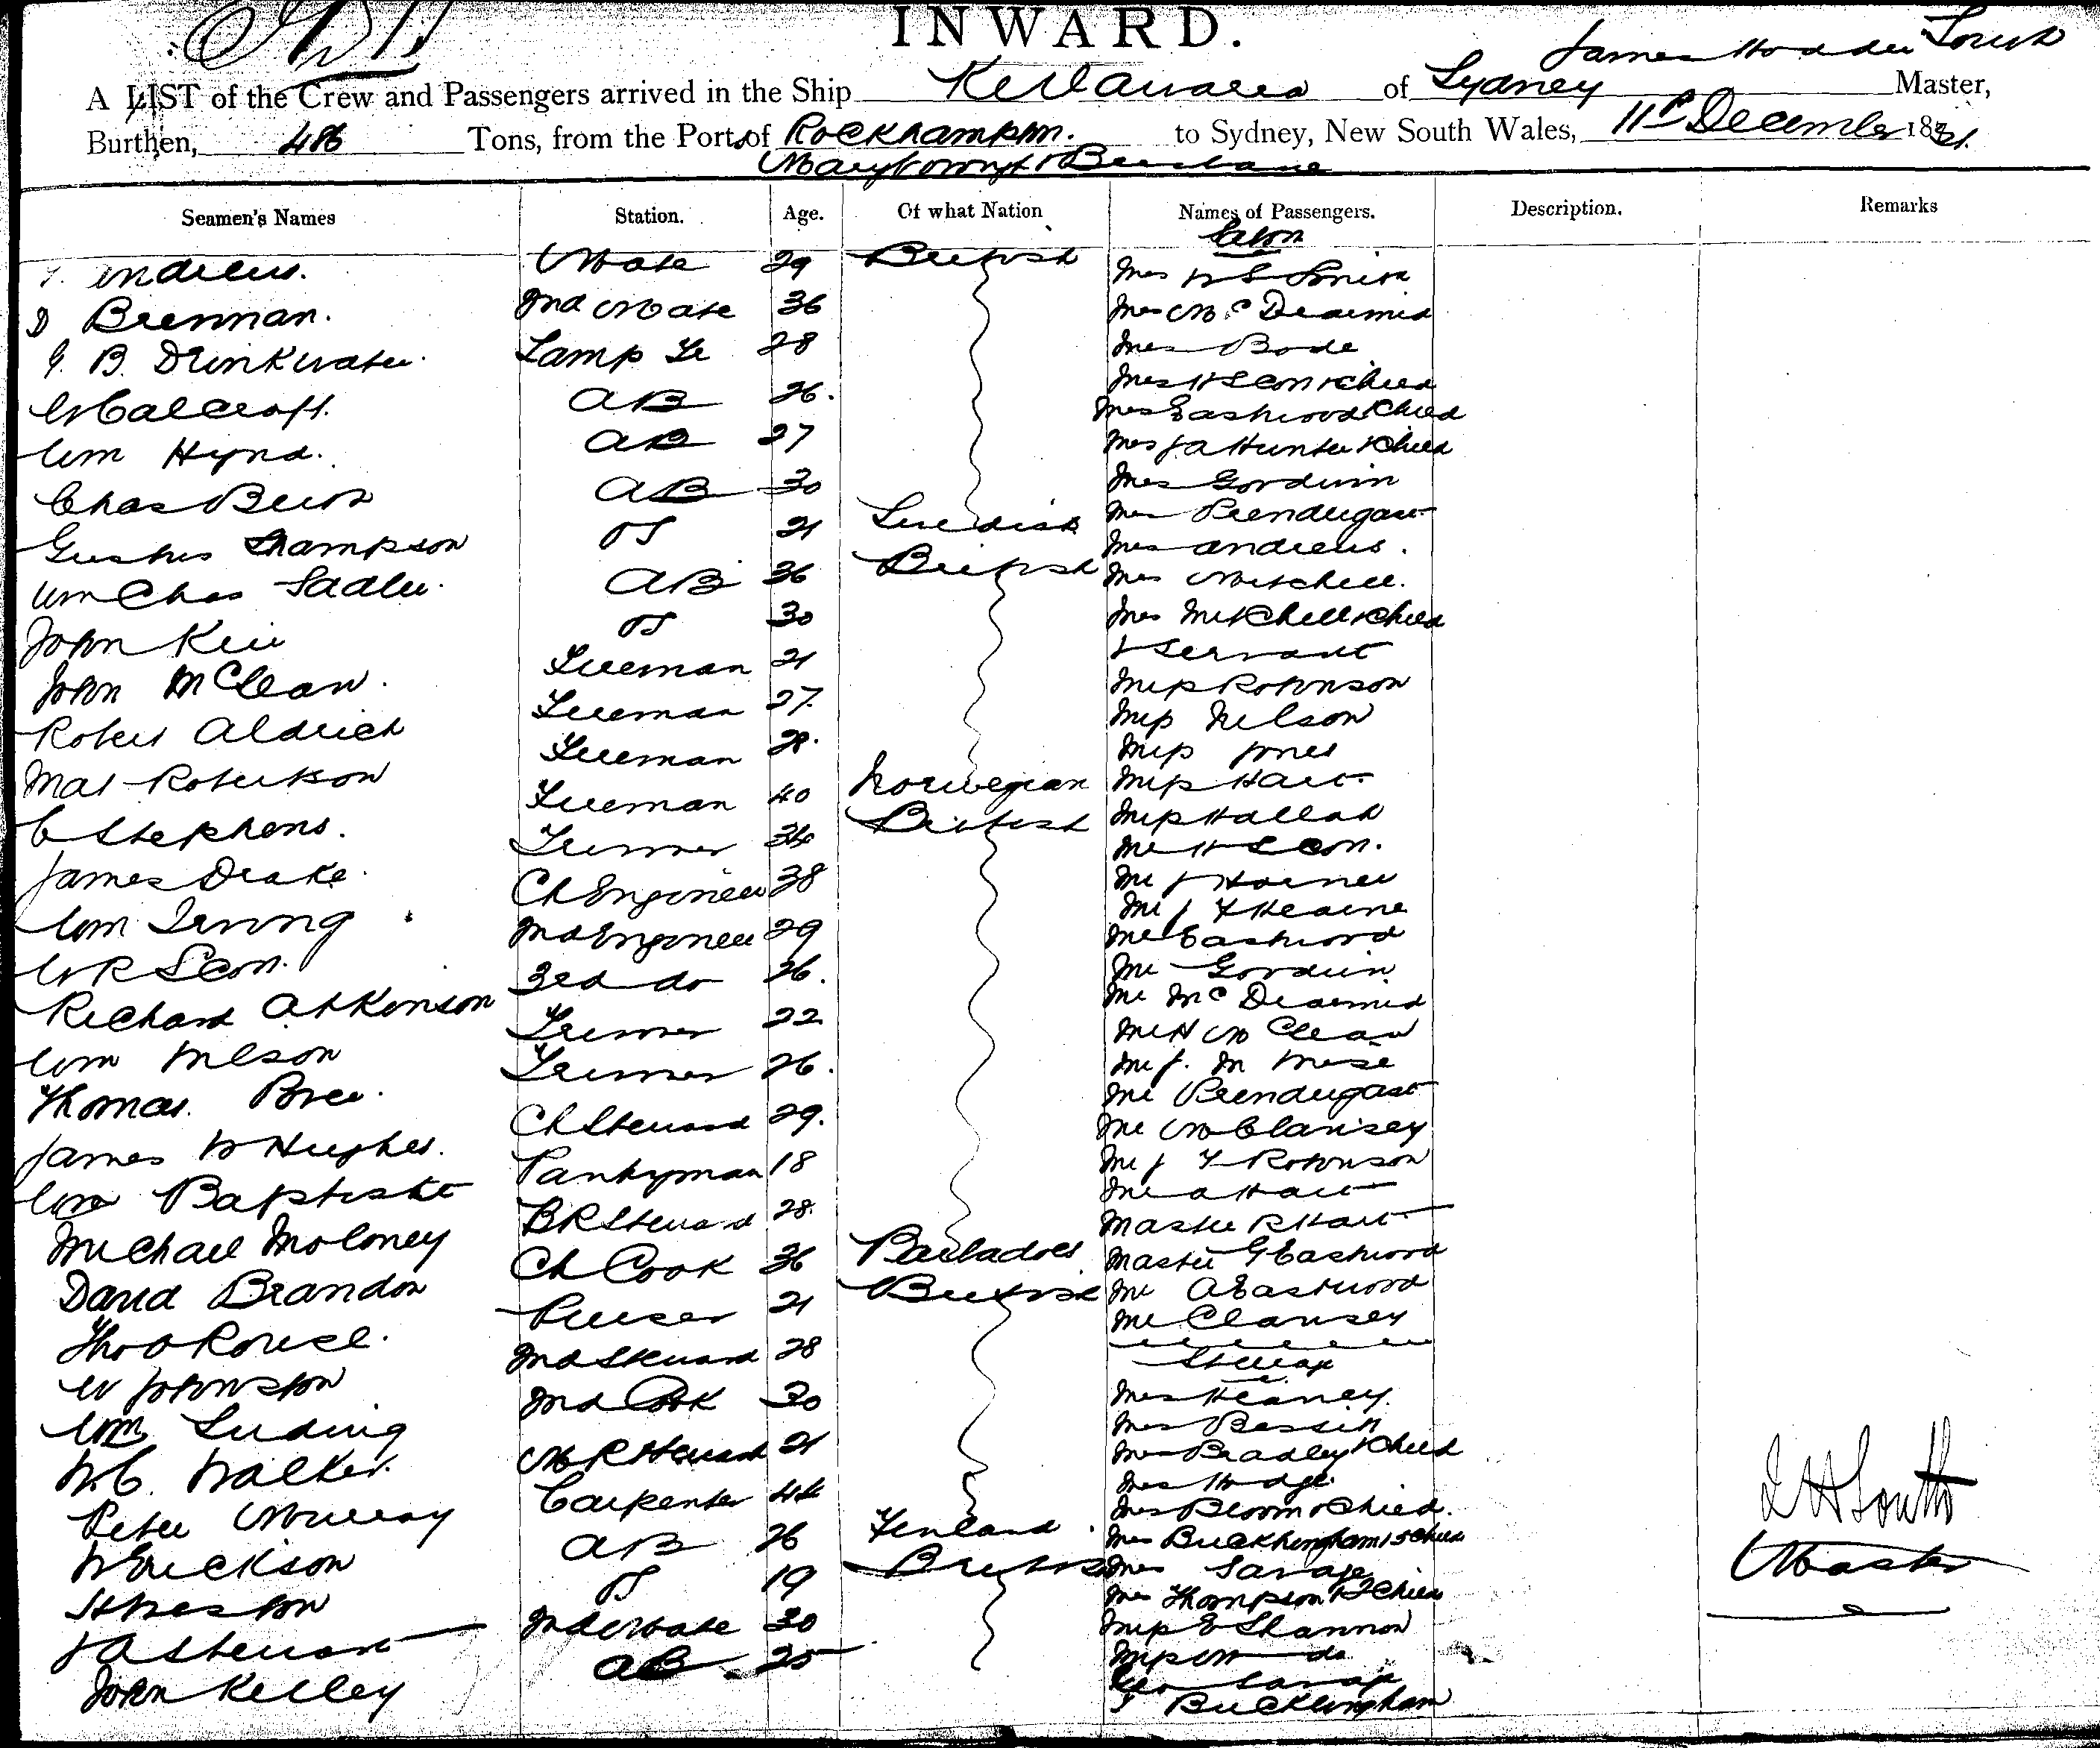 INWARD.
James Hodder South
A LIST of the Crew and Passengers arrived in the Ship Keilawarra of Sydney Master,
Burthen, 486 Tons, from the Port of Rockhampton. to Sydney, New South Wales, 11th December 1881.
Maryborough & Brisbane
Seamen's Names Station. Age. Of what Nation Names of Passengers. Description. Remarks
Saloon
Andrews. Mate 29 British Mrs Smith
D Brennan. 2nd Mate 36 Mrs McDearmid
B. Drinkwater. Lamp Tr 28 Mrs Bode
W Calcroft. AB 26. Mrs & Child
Wm Hynd. AB 27 Mrs Eastwood & Child
Chas AB 30 Mrs J A Hunter & Child
Mrs Gordwin
Thampson OS 21 Swedish Mrs Prendergast
Wm Chas Sadler. AB 36 British Mrs Andrews.
Mrs Mitchell.
John Keir OS 30 Mrs Mitchell & Child
& Servant
John McClean. Fireman 21 Miss Robinson
Robert Aldrich Fireman 27. Miss Nelson
Mat Robertson Fireman 28. Miss Jones
C Stephens. Fireman 40 Norwegian Miss Hart
James Drake. Trimmer 34 British Miss Hallah
Wm Irving Ch Engineer 38 Mr J Horner
W R Scon. 2nd Engineer 29 Mr J Hearne
Mr Eastwood
Richard Atkinson 3rd do 26. Mr Gordwin
Mr McDearmid
Wm Nelson Trimmer 22 Mr H McClean
Thomas Trimmer 26. Mr J. M
Mr Prendergast
James W Hughes. Ch Steward 29. Mr M Clansey
Wm Baptiste Pantryman 18 Mr J Robinson
Mr A Hart
Michael Moloney BR Steward 28. Master R Hart
David Brandon Ch Cook 36 Barbadoes Master G Eastwood
Thos Rouse. Purser 21 British Mr A Eastwood
Mr Clansey
W Johnston 2nd Steward 28 Steerage
Wm Luding 2nd Cook 30 Mrs Heaney.
Mrs
W C. Walker. Steward 21 Mrs Bradley & Child
Mrs Hodge
Peter Murray Carpenter 44 Mrs Bloom & Child.
W Erickson AB 26 Finland Mrs Buckhingham & 5 Child
H Preston OS 19 British Mrs Savage
Mrs Thompson & 2 Child
J A Stewart 2nd Mate 30 Miss E Shannon
John Kelley AB 25 Miss M do
Geo Savage
T Buckhingham
J H South
Master